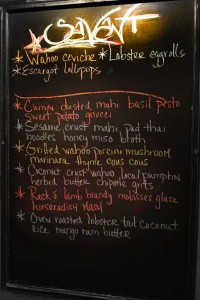 Savant
* Wahoo ceviche * Lobster eggrolls
* Escargot lollipops
* Cumin dusted mahi basil pesto
sweet potato gnocci
* Sesame crust mahi, pad thai
noodles honey miso broth
* Grilled wahoo porcini mushroom
marinara thyme cous cous
* Coconut crust wahoo local pumpkin
herbed butter chipotle grits
* Rack o lamb brandy molasses glaze
horseradish mash
* Oven roasted lobster tail coconut
rice mango rum butter